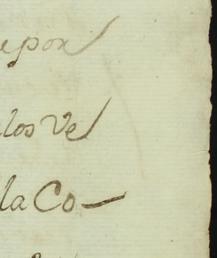 epor
los Ve
la Co-